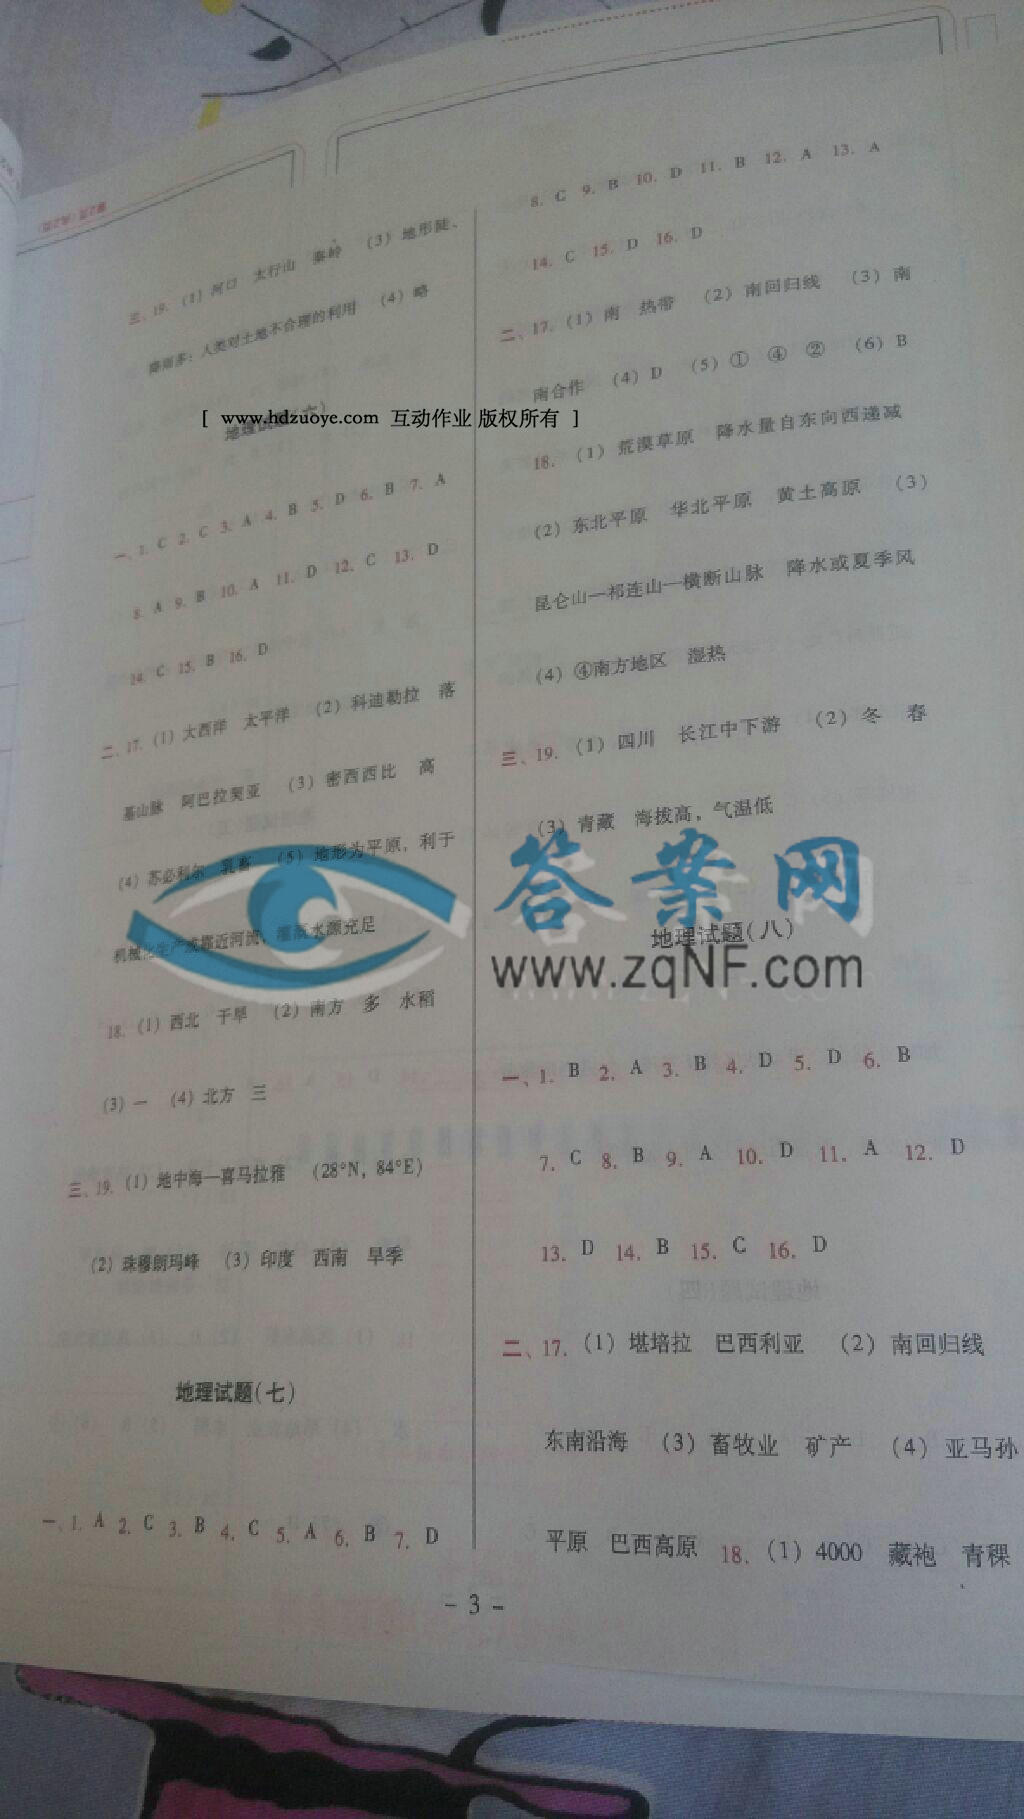 三、19. (1) 河口 太行山 秦岭 (3) 地形陡、
降雨多; 人类对土地不合理的利用 (4) 略
[ www.hdzuoye.com 互动作业 版权所有 ]
地理试题(六)
一、1. C 2. C 3. A 4. B 5. D 6. B 7. A
8. A 9. B 10. A 11. D 12. C 13. D
14. C 15. B 16. D
二、17. (1) 大西洋 太平洋 (2) 科迪勒拉 落
基山脉 阿巴拉契亚 (3) 密西西比 高
(4) 苏必利尔 乳畜 (5) 地形为平原, 利于
机械化生产或靠近河流、灌溉水源充足
18. (1) 西北 干旱 (2) 南方 多 水稻
(3) 一 (4) 北方 三
三、19. (1) 地中海—喜马拉雅 (28°N, 84°E)
(2) 珠穆朗玛峰 (3) 印度 西南 旱季
地理试题(七)
一、1. A 2. C 3. B 4. C 5. A 6. B 7. D
8. C 9. B 10. D 11. B 12. A 13. A
14. C 15. D 16. D
二、17. (1) 南 热带 (2) 南回归线 (3) 南
南合作 (4) D (5) ① ④ ② (6) B
18. (1) 荒漠草原 降水量自东向西递减
(2) 东北平原 华北平原 黄土高原 (3)
昆仑山—祁连山—横断山脉 降水或夏季风
(4) ④南方地区 湿热
三、19. (1) 四川 长江中下游 (2) 冬 春
(3) 青藏 海拔高, 气温低
答案网
www.zqNF.com
地理试题(八)
一、1. B 2. A 3. B 4. D 5. D 6. B
7. C 8. B 9. A 10. D 11. A 12. D
13. D 14. B 15. C 16. D
二、17. (1) 堪培拉 巴西利亚 (2) 南回归线
东南沿海 (3) 畜牧业 矿产 (4) 亚马孙
平原 巴西高原 18. (1) 4000 藏袍 青稞
- 3 -